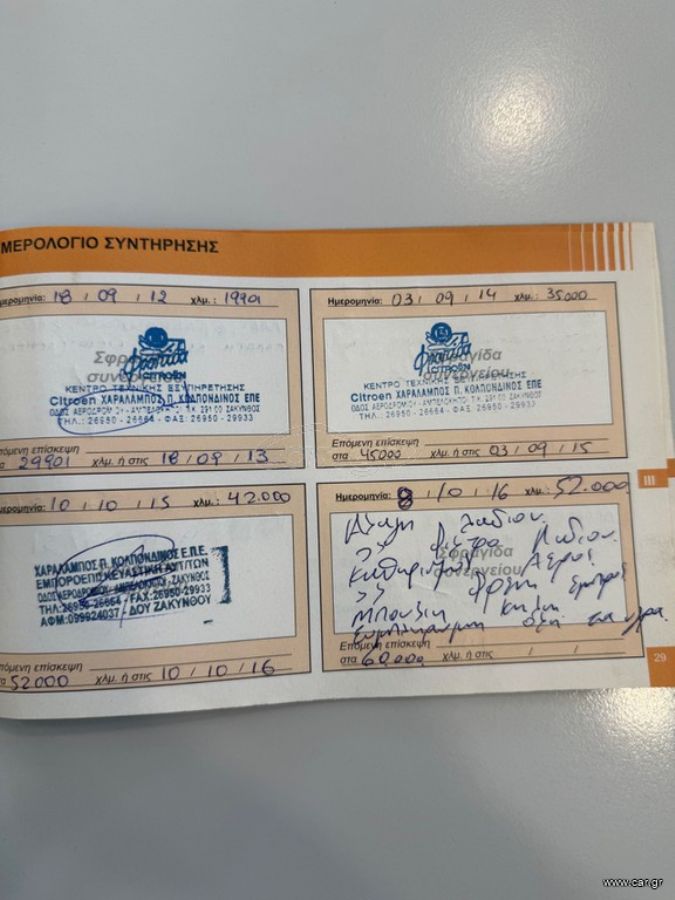 ΜΕΡΟΛΟΓΙΟ ΣΥΝΤΗΡΗΣΗΣ
μερομηνία: 18 / 09 / 12 χλμ.: 19901
Σφραγίδα
συνεργείου
Φροντίδα
CITROËN
ΚΕΝΤΡΟ ΤΕΧΝΙΚΗΣ ΕΞΥΠΗΡΕΤΗΣΗΣ
Citroen ΧΑΡΑΛΑΜΠΟΣ Π. ΚΟΛΠΟΝΔΙΝΟΣ ΕΠΕ
ΟΔΟΣ ΑΕΡΟΔΡΟΜΙΟΥ - ΑΜΠΕΛΟΚΗΠΟΙ Τ.Κ. 291 00 ΖΑΚΥΝΘΟΣ
ΤΗΛ.: 26950 - 26664 - ΦΑΞ: 26950 - 29933
πόμενη επίσκεψη
α 29901 χλμ. ή στις 18 / 09 / 13
Ημερομηνία: 03 / 09 / 14 χλμ.: 35000
Φροντίδα
CITROËN
Σφραγίδα
συνεργείου
ΚΕΝΤΡΟ ΤΕΧΝΙΚΗΣ ΕΞΥΠΗΡΕΤΗΣΗΣ
Citroen ΧΑΡΑΛΑΜΠΟΣ Π. ΚΟΛΠΟΝΔΙΝΟΣ ΕΠΕ
ΟΔΟΣ ΑΕΡΟΔΡΟΜΙΟΥ - ΑΜΠΕΛΟΚΗΠΟΙ Τ.Κ. 291 00 ΖΑΚΥΝΘΟΣ
ΤΗΛ.: 26950 - 26664 - ΦΑΞ: 26950 - 29933
Επόμενη επίσκεψη
στα 45000 χλμ. ή στις 03 / 09 / 15
μερομηνία: 10 / 10 / 15 χλμ.: 42.000
ΧΑΡΑΛΑΜΠΟΣ Π. ΚΟΛΠΟΝΔΙΝΟΣ Ε.Π.Ε.
ΕΜΠΟΡΟΕΠΙΣΚΕΥΑΣΤΙΚΗ ΑΥΤ/ΤΩΝ
ΟΔΟΣ ΑΕΡΟΔΡΟΜΙΟΥ, ΑΜΠΕΛΟΚΗΠΟΙ, ΖΑΚΥΝΘΟΣ
ΤΗΛ: 26950-26664 / FAX: 26950-29933
ΑΦΜ: 099924037 / ΔΟΥ ΖΑΚΥΝΘΟΥ
πόμενη επίσκεψη
α 52000 χλμ. ή στις 10 / 10 / 16
Ημερομηνία: 8 / 10 / 16 χλμ.: 52.000
Αλλαγη λαδιου.
φιλτρο λαδιου
Σφραγίδα
συνεργείου
αερος
εμπρος
Συμπληρωμα
Επόμενη επίσκεψη
στα 60.000 χλμ. ή στις / /
III
29
www.car.gr